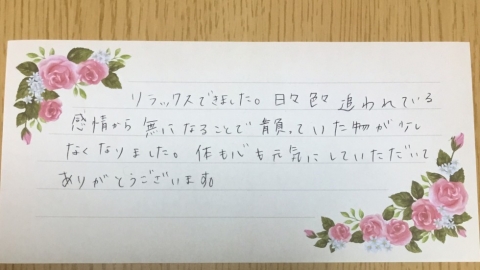 リラックスできました。日々色々追われている
感情から無になることで背負っていた物が少し
なくなりました。体も心も元気にしていただいて
ありがとうございます。